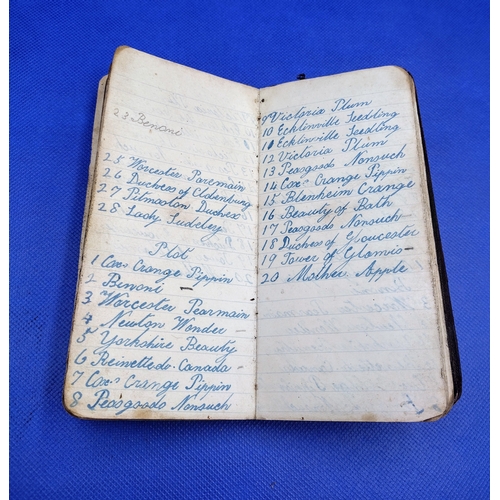 23 Benoni
25 Worcester Paremain
26 Duchess of Oldenburg
27 Pitmaston Duchess
28 Lady Sudeley
Plot
1 Coxs Orange Pippin
2 Benoni
3 Worcester Pearmain
4 Newton Wonder
5 Yorkshire Beauty
6 Reinette do Canada
7 Coxs Orange Pippin
8 Peasgoods Nonsuch
9 Victoria Plum
10 Ecklinville Seedling
11 Ecklinville Seedling
12 Victoria Plum
13 Peasgoods Nonsuch
14 Coxs Orange Pippin
15 Blenheim Orange
16 Beauty of Bath
17 Peasgoods Nonsuch
18 Duchess of Gloucester
19 Tower of Glamis
20 Mother Apple